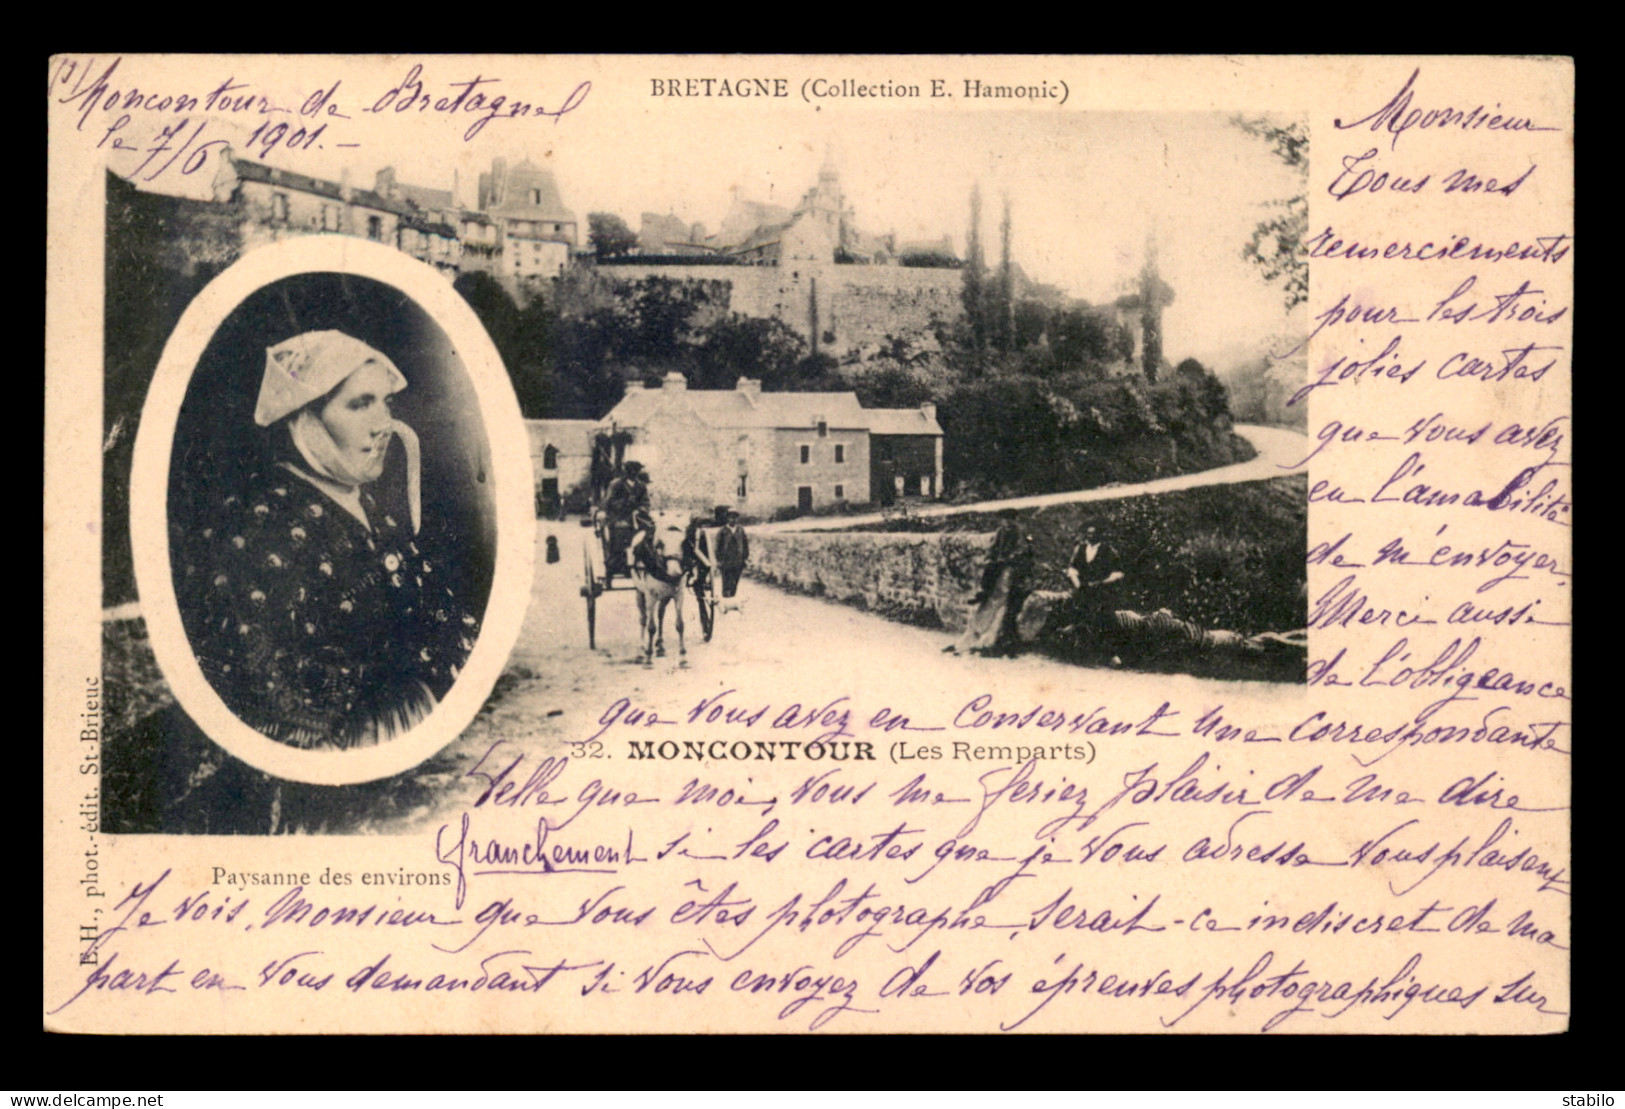 (1) Moncontour de Bretagne
le 7/6 1901. -
BRETAGNE (Collection E. Hamonic)
Monsieur
Tous mes
remerciements
pour les trois
jolies cartes
que vous avez
eu l'amabilité
de m'envoyer.
Merci aussi
de l'obligeance
que vous avez en conservant une correspondante
32. MONCONTOUR (Les Remparts)
telle que moi, vous me feriez plaisir de me dire
franchement si les cartes que je vous adresse vous plaisent
Paysanne des environs
Je vois, Monsieur que vous êtes photographe, serait-ce indiscret de ma
part en vous demandant si vous envoyez de vos épreuves photographiques sur
E. H., phot.-édit. St-Brieuc
delcampe.net
stabilo